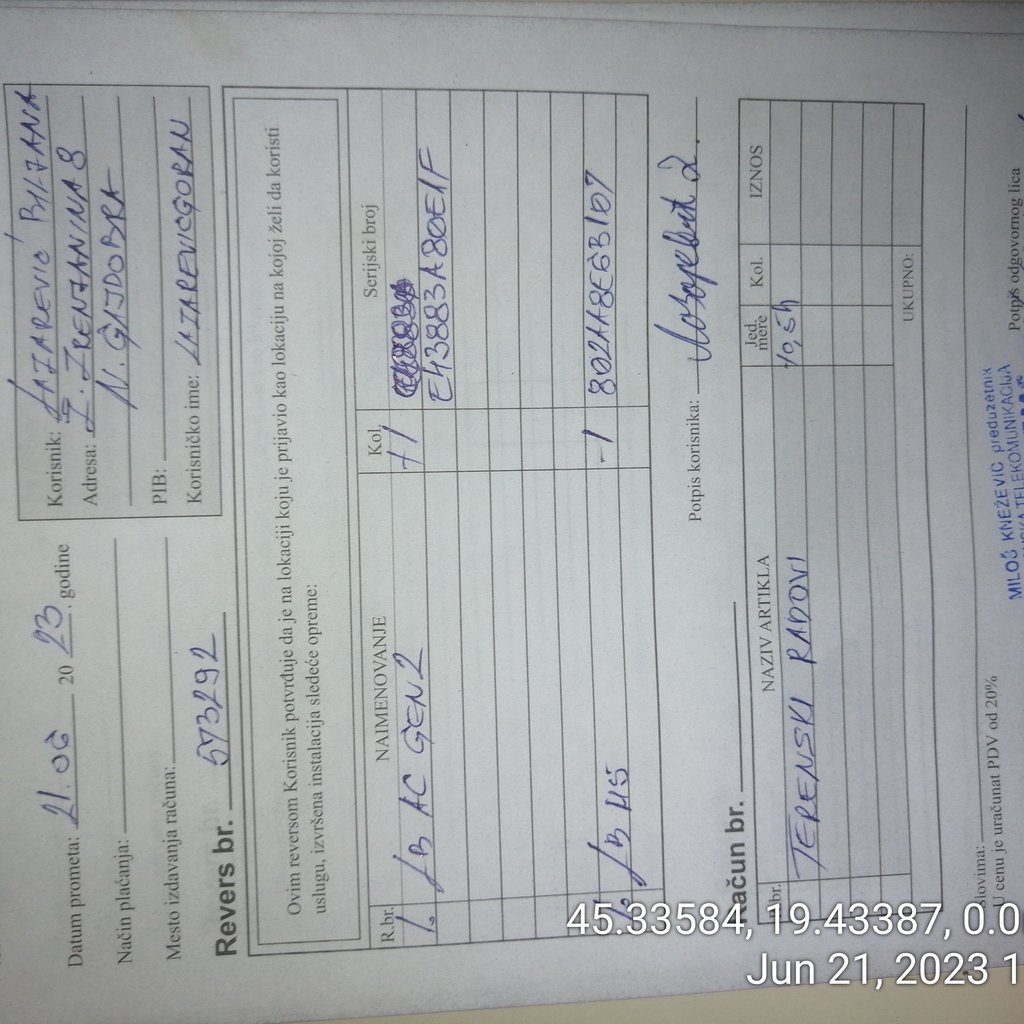 Datum prometa: 21.06 20 23. godine
Način plaćanja:
Mesto izdavanja računa:
Korisnik: LAZAREVIĆ BILJANA
Adresa: Ž. ZRENJANINA 8
N. GAJDOBRA
PIB:
Korisničko ime: LAZAREVICGORAN
Revers br. 573292
Ovim reversom Korisnik potvrđuje da je na lokaciji koju je prijavio kao lokaciju na kojoj želi da koristi
uslugu, izvršena instalacija sledeće opreme:
R.br. NAIMENOVANJE Kol. Serijski broj
1. LB AC GEN2 +1
E43883A80E1F
1. LB M5 -1 802AA8E6B1D7
Potpis korisnika:
Račun br.
R.br. NAZIV ARTIKLA Jed. mere Kol. IZNOS
TERENSKI RADOVI +0,5h
UKUPNO:
Slovima:
U cenu je uračunat PDV od 20%
MILOŠ KNEŽEVIĆ preduzetnik
TELEKOMUNIKACIJA
Potpis odgovornog lica
45.33584, 19.43387, 0.0
Jun 21, 2023 1